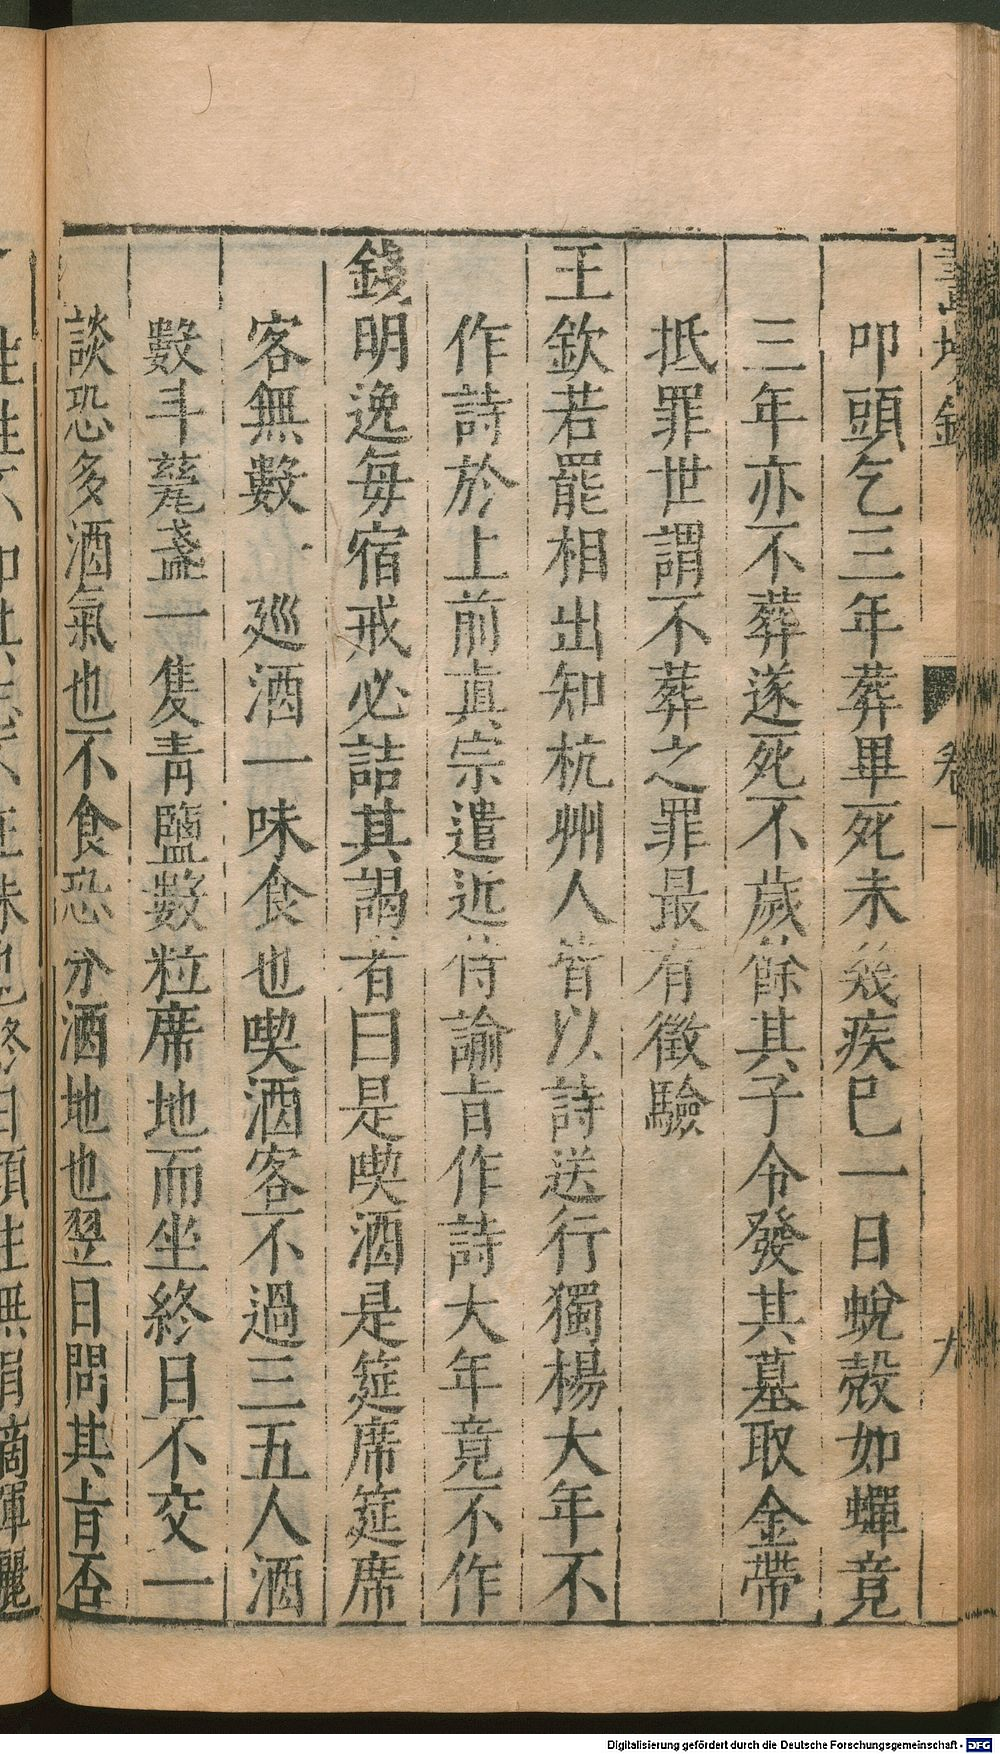 叩頭乞三年葬畢死未幾疾巳一日蛻殼如蟬竟
三年亦不葬遂死不歲餘其子令發其墓取金帶
抵罪世謂不葬之罪最有徵驗
王欽若罷相出知杭州人皆以詩送行獨楊大年不
作詩於上前真宗遣近侍諭旨作詩大年竟不作
錢明逸每宿戒必詰其謁者曰是喫酒是筵席筵席
客無數廵酒一味食也喫酒客不過三五人酒
數斗甆盞一隻青鹽數粒席地而坐終日不交一
談恐多酒氣也不食恐分酒地也翌日問其旨否
卷一
九
Digitalisierung gefördert durch die Deutsche Forschungsgemeinschaft - DFG